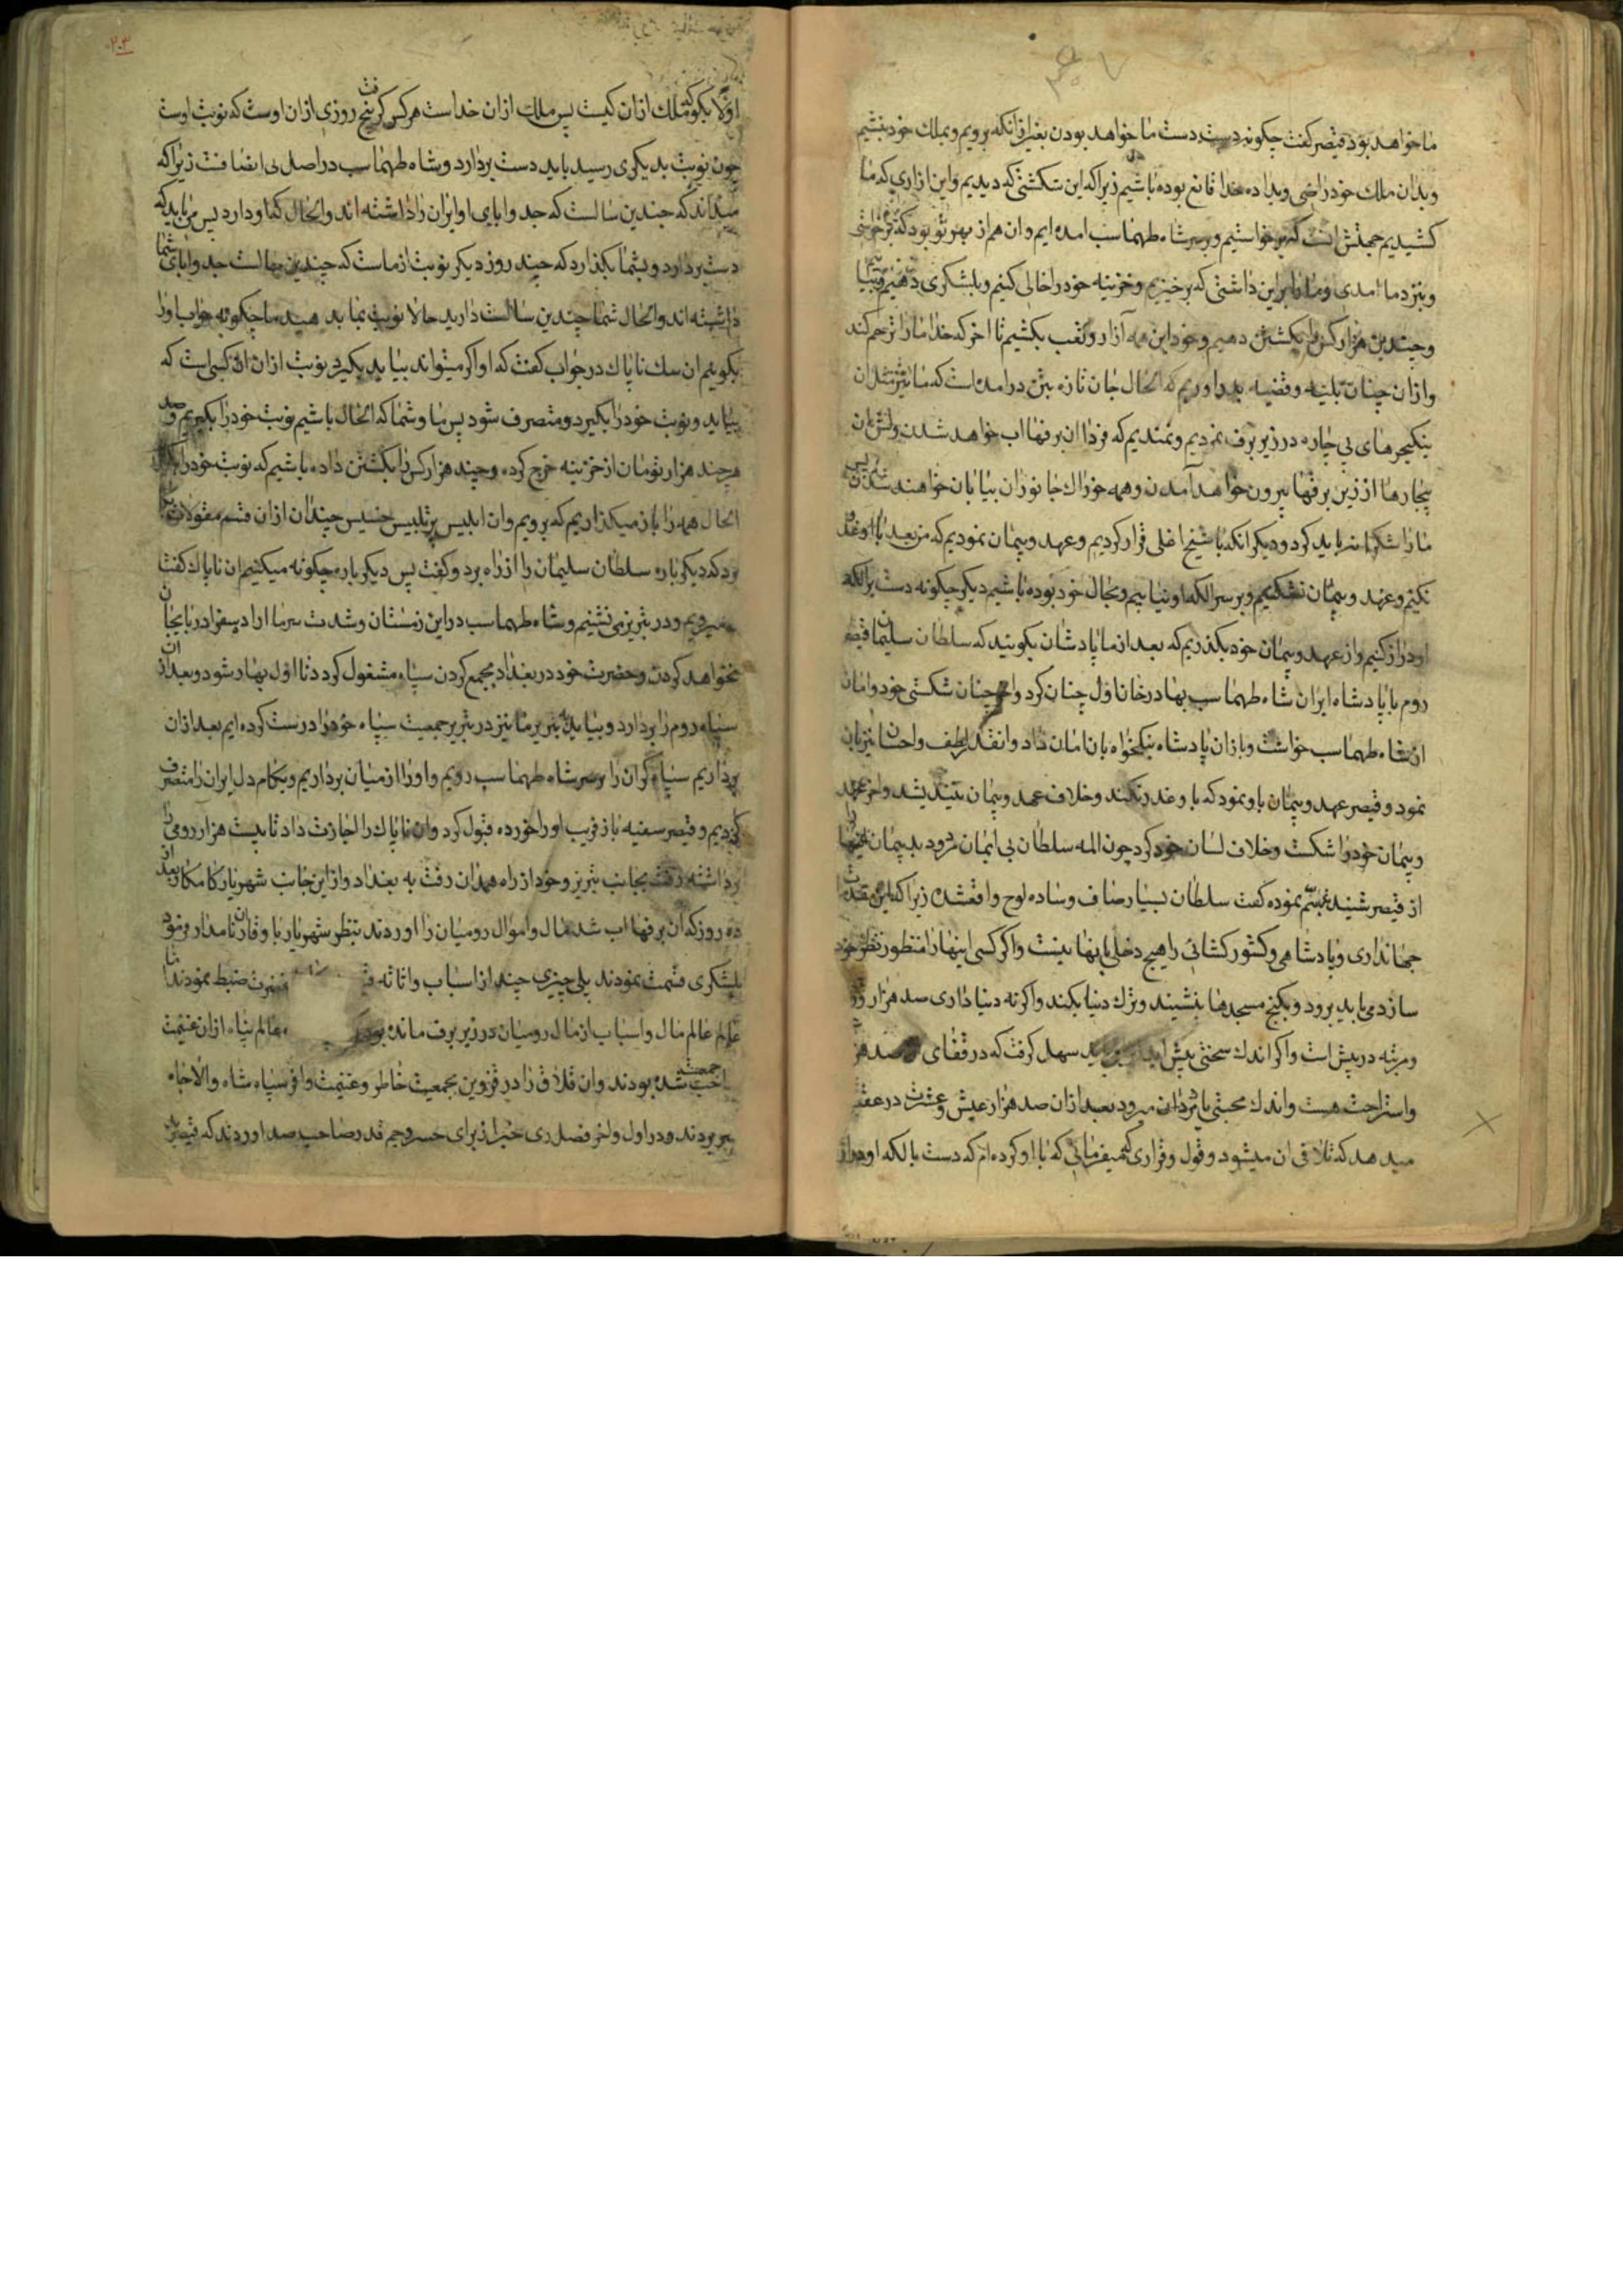 ما خواهد بود قیصر گفت چکونه دست دست ما خواهد بودن بغیر از انکه برویم و بملک خود بنشیم
و بدان ملک خود راضی و بداده خدا قانع بوده باشیم زیرا که این شکستی که دیدیم و این ازاری که ما
کشیدیم جهتش انست که برخواستیم و بر سر شاه طهماسب امده ایم و ان هم از بهر تو بود که برخواستی
و بنزد ما امدی و ما را براین داشتی که برخیزیم و خزینه خود را خالی کنیم و بلشکری دهیم و بیا
و چندین هزار کس را بکشتن دهیم و خود این همه آزار و تعب بکشیم تا اخر که خدا ما را ترحم کند
و ازان چنان بلیه و قضیه بدر اوریم که الحال جان تازه بتن در امده است که ما نیز مثل ان
ینکیچرهای بی چاره در زیر برف نمردیم و نمندیم که فردا ان برفها اب خواهد شدن و لش ان
بیچارها از زیر برفها بیرون خواهد آمدن و همه خوراک جانوران بیابان خواهند شدن پس
ما را شکرانه باید کرد و دیکر انکه با شیخ اغلی قرار کردیم و عهد و پیمان نمودیم که من بعد با او غدر
نکنیم و عهد و پیمان نشکنیم و بر سر الکه او نیاییم و بحال خود بوده باشیم دیکر چکونه دست بر الکه
او دراز کنیم و از عهد و پیمان خود بکذریم که بعد از ما پادشان بکویند که سلطان سلیمان قیصر
روم با پادشاه ایران شاه طهماسب بهادرخان اول چنان کرد و اخر چنان شکستی خورد و امان
از شاه طهماسب خواست و باز ان پادشاه نیکخواه بان امان داد و انقدر لطف و احسان نیز بان
نمود و قیصر عهد و پیمان باو نمود که باو غدر نکند و خلاف عهد و پیمان نیندیشد و اخر عهد
و پیمان خود را شکست و خلاف لسان خود کرد چون المه سلطان بی ایمان مردود بد پیمان اینها را
از قیصر شنید تبسم نموده گفت سلطان بسیار صاف و ساده لوح واقعشده زیرا که این مقدمات
جهانداری و پادشاهی و کشور کشائی را هیچ دخلی باینها نیست و اکر کسی اینها را منظور نظر خود
سازد می باید برود و بکنج مسجدها بنشیند و ترک دنیا بکند و اکرنه دنیا داری صد هزار
و مرتبه در پیش است و اکر اندک سختی پیش اید باید سهل کرفت که در قفای صد هزار
و استراحت هست و اندک محبتی یا بردان میرود بعد ازان صد هزار عیش و عشرت در عقب
میدهد که تلافی ان میشود و قول و قراری که میفرمائی که با او کرده ام که دست بالکه او دراز
۲۰۳
اولا بکو که ملک ازان کیست پس ملک ازان خداست هرکس کرفت پنج روزی ازان اوست که نوبت اوست
چون نوبت بدیکری رسید باید دست بردارد و شاه طهماسب در اصل بی انصافست زیرا که
میداند که چندین سالست که جد و ابای او ایران را داشته اند و الحال کما و دارد پس می باید که
دست بردارد و بشما بکذارد که چند روز دیکر نوبت از ماست که چندین سالست جد و ابای شما
داشته اند و الحال شما چندین سالست دارید حالا نوبت بما بدهید ما چکونه جواب او را
بکوییم ان سک ناپاک در جواب کفت که او اکر میتواند بیاید بکیرد نوبت ازان ان کسی است که
بیاید و نوبت خود را بکیرد و متصرف شود پس ما و شما که الحال باشیم نوبت خود را بکیریم و صد
هر چند هزار تومان از خزینه خرج کرده و چند هزار کس را بکشتن داده باشیم که نوبت خود را
الحال همه را باز میکذاریم که برویم و ان ابلیس پرتلبیس خسیس چندان ازان قسم مقولات
زد که دیکر باره سلطان سلیمان را از راه برد و کفت پس دیکر باره چکونه میکنیم ان ناپاک کفت
میرویم و در تبریز می نشنیم و شاه طهماسب در این زمستان و شدت سرما اراده سفر اذربایجان
نخواهد کردن و حضرت خود در بغداد بجمع کردن سپاه مشغول کردد تا اول بهار شود و بعد ازان
سپاه روم را بردارد و بیاید به تبریز ما نیز در تبریز جمعیت سپاه خود را درست کرده ایم بعد ازان
برداریم سپاه کران را بر سر شاه طهماسب رویم و او را از میان برداریم و بکام دل ایران را متصرف
کردیم و قیصر سفیه باز فریب او را خورده قبول کرد و ان ناپاک را اجازت داد تا بیست هزار رومی را
برداشته رفت بجانب تبریز و خود از راه همدان رفت به بغداد و از این جانب شهریار کامکار بعد از
ده روز که ان برفها اب شد مال و اموال رومیان را اوردند بنظر شهریار با وقار نامدار فرمود
بلشکری قسمت نمودند یلی چیزی چند از اسباب و اثاثه ضبط نمودند تا
عالم عالم مال و اسباب از مال رومیان در زیر برف مانده بود عالم پناه ازان غنیمت
صاحب جمعیت شده بودند و ان قلاق را در قزوین بجمعیت خاطر و غنیمت وافر سپاه شاه والاجاه
بسر بردند و در اول و اخر فصل دی خبر از برای خسرو جم قدر صاحب صد اوردند که قیصر